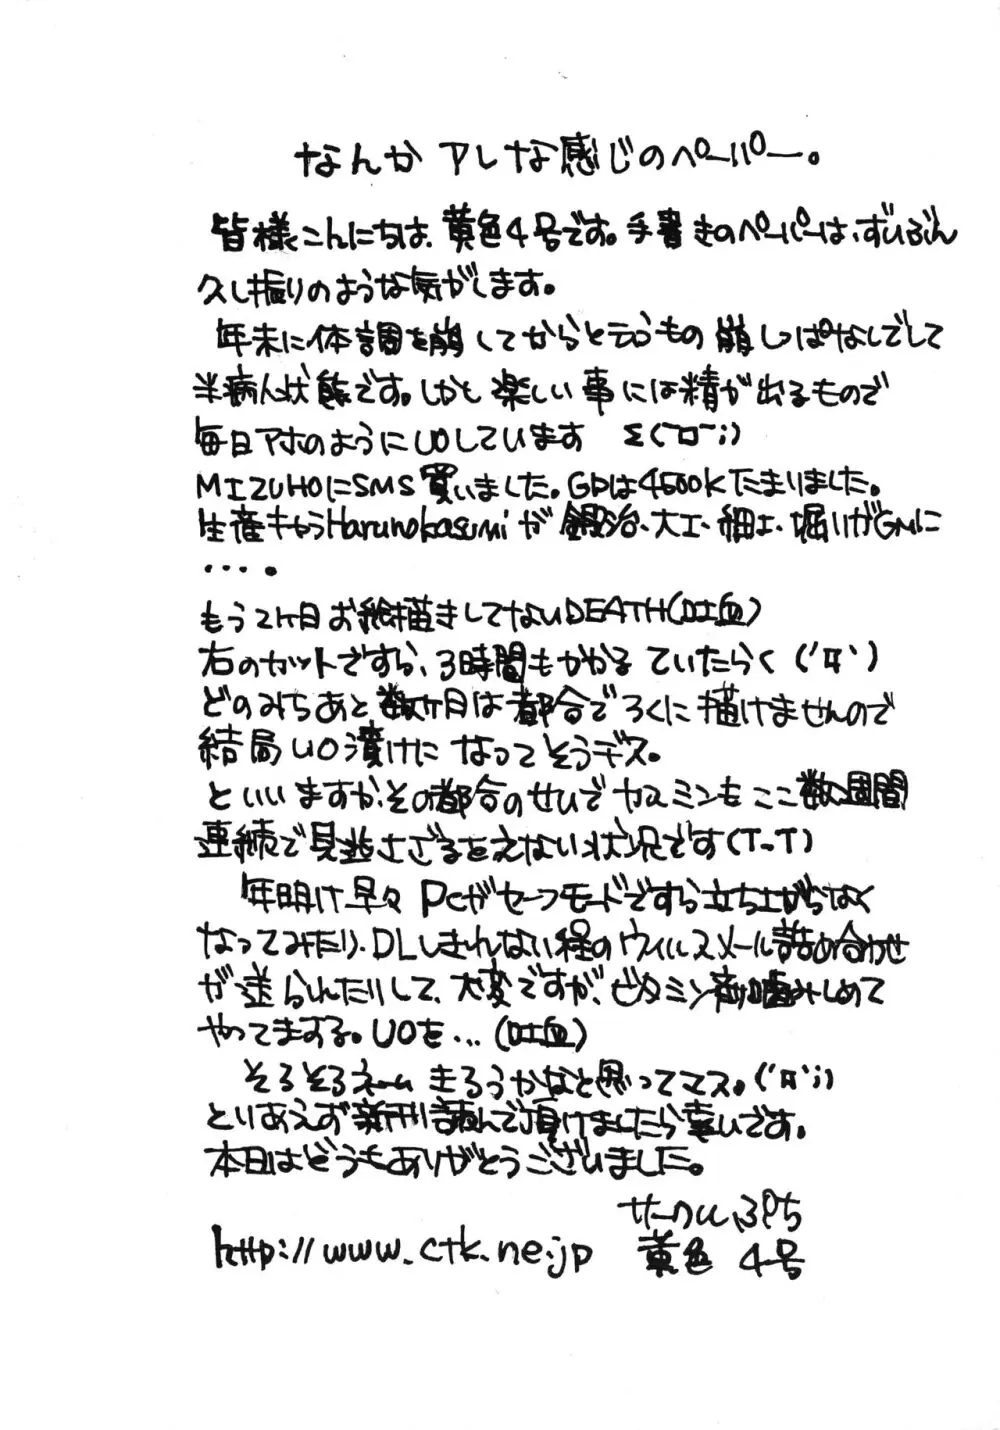 なんか アレな感じのペーパー。
皆様こんにちは、黄色4号です。手書きのペーパーは、ずいぶん
久し振りのような気がします。
年末に体調を崩してからと言うもの 崩しっぱなしでして
半病人状態です。しかと 楽しい事には精が出るもので
毎日アホのようにUOしています Σ(￣□￣;)
MIZUHOにSMS買いました。GPは4500kたまりました。
生産キャラHarunokasumiが 鍛冶、大工、細工、堀りがGMに
・・・。
もう2ヶ月お絵描きしてないDEATH(吐血)
右のカットですら、3時間もかかる ていたらく ('Д`)
どのみちあと 数ヶ月は都合でろくに描けませんので
結局UO漬けに なってそうデス。
といいますか、その都合のせいで ヤスミンも ここ数週間
連続で見逃さざるをえない状況です(T-T)
年明け早々 PCがセーフモードですら立ち上がらなく
なってみたり、DLしきれない程のウィルスメール詰め合わせ
が送られたりして、大変ですが、ビタミン剤噛みしめて
やってますよ。UOを...(吐血)
そろそろネーム きろうかなと思ってマス。('Д`;)
とりあえず新刊読んで頂けましたら幸いです。
本日はどうもありがとうございました。
サークル ぷち
http://www.ctk.ne.jp 黄色 4号